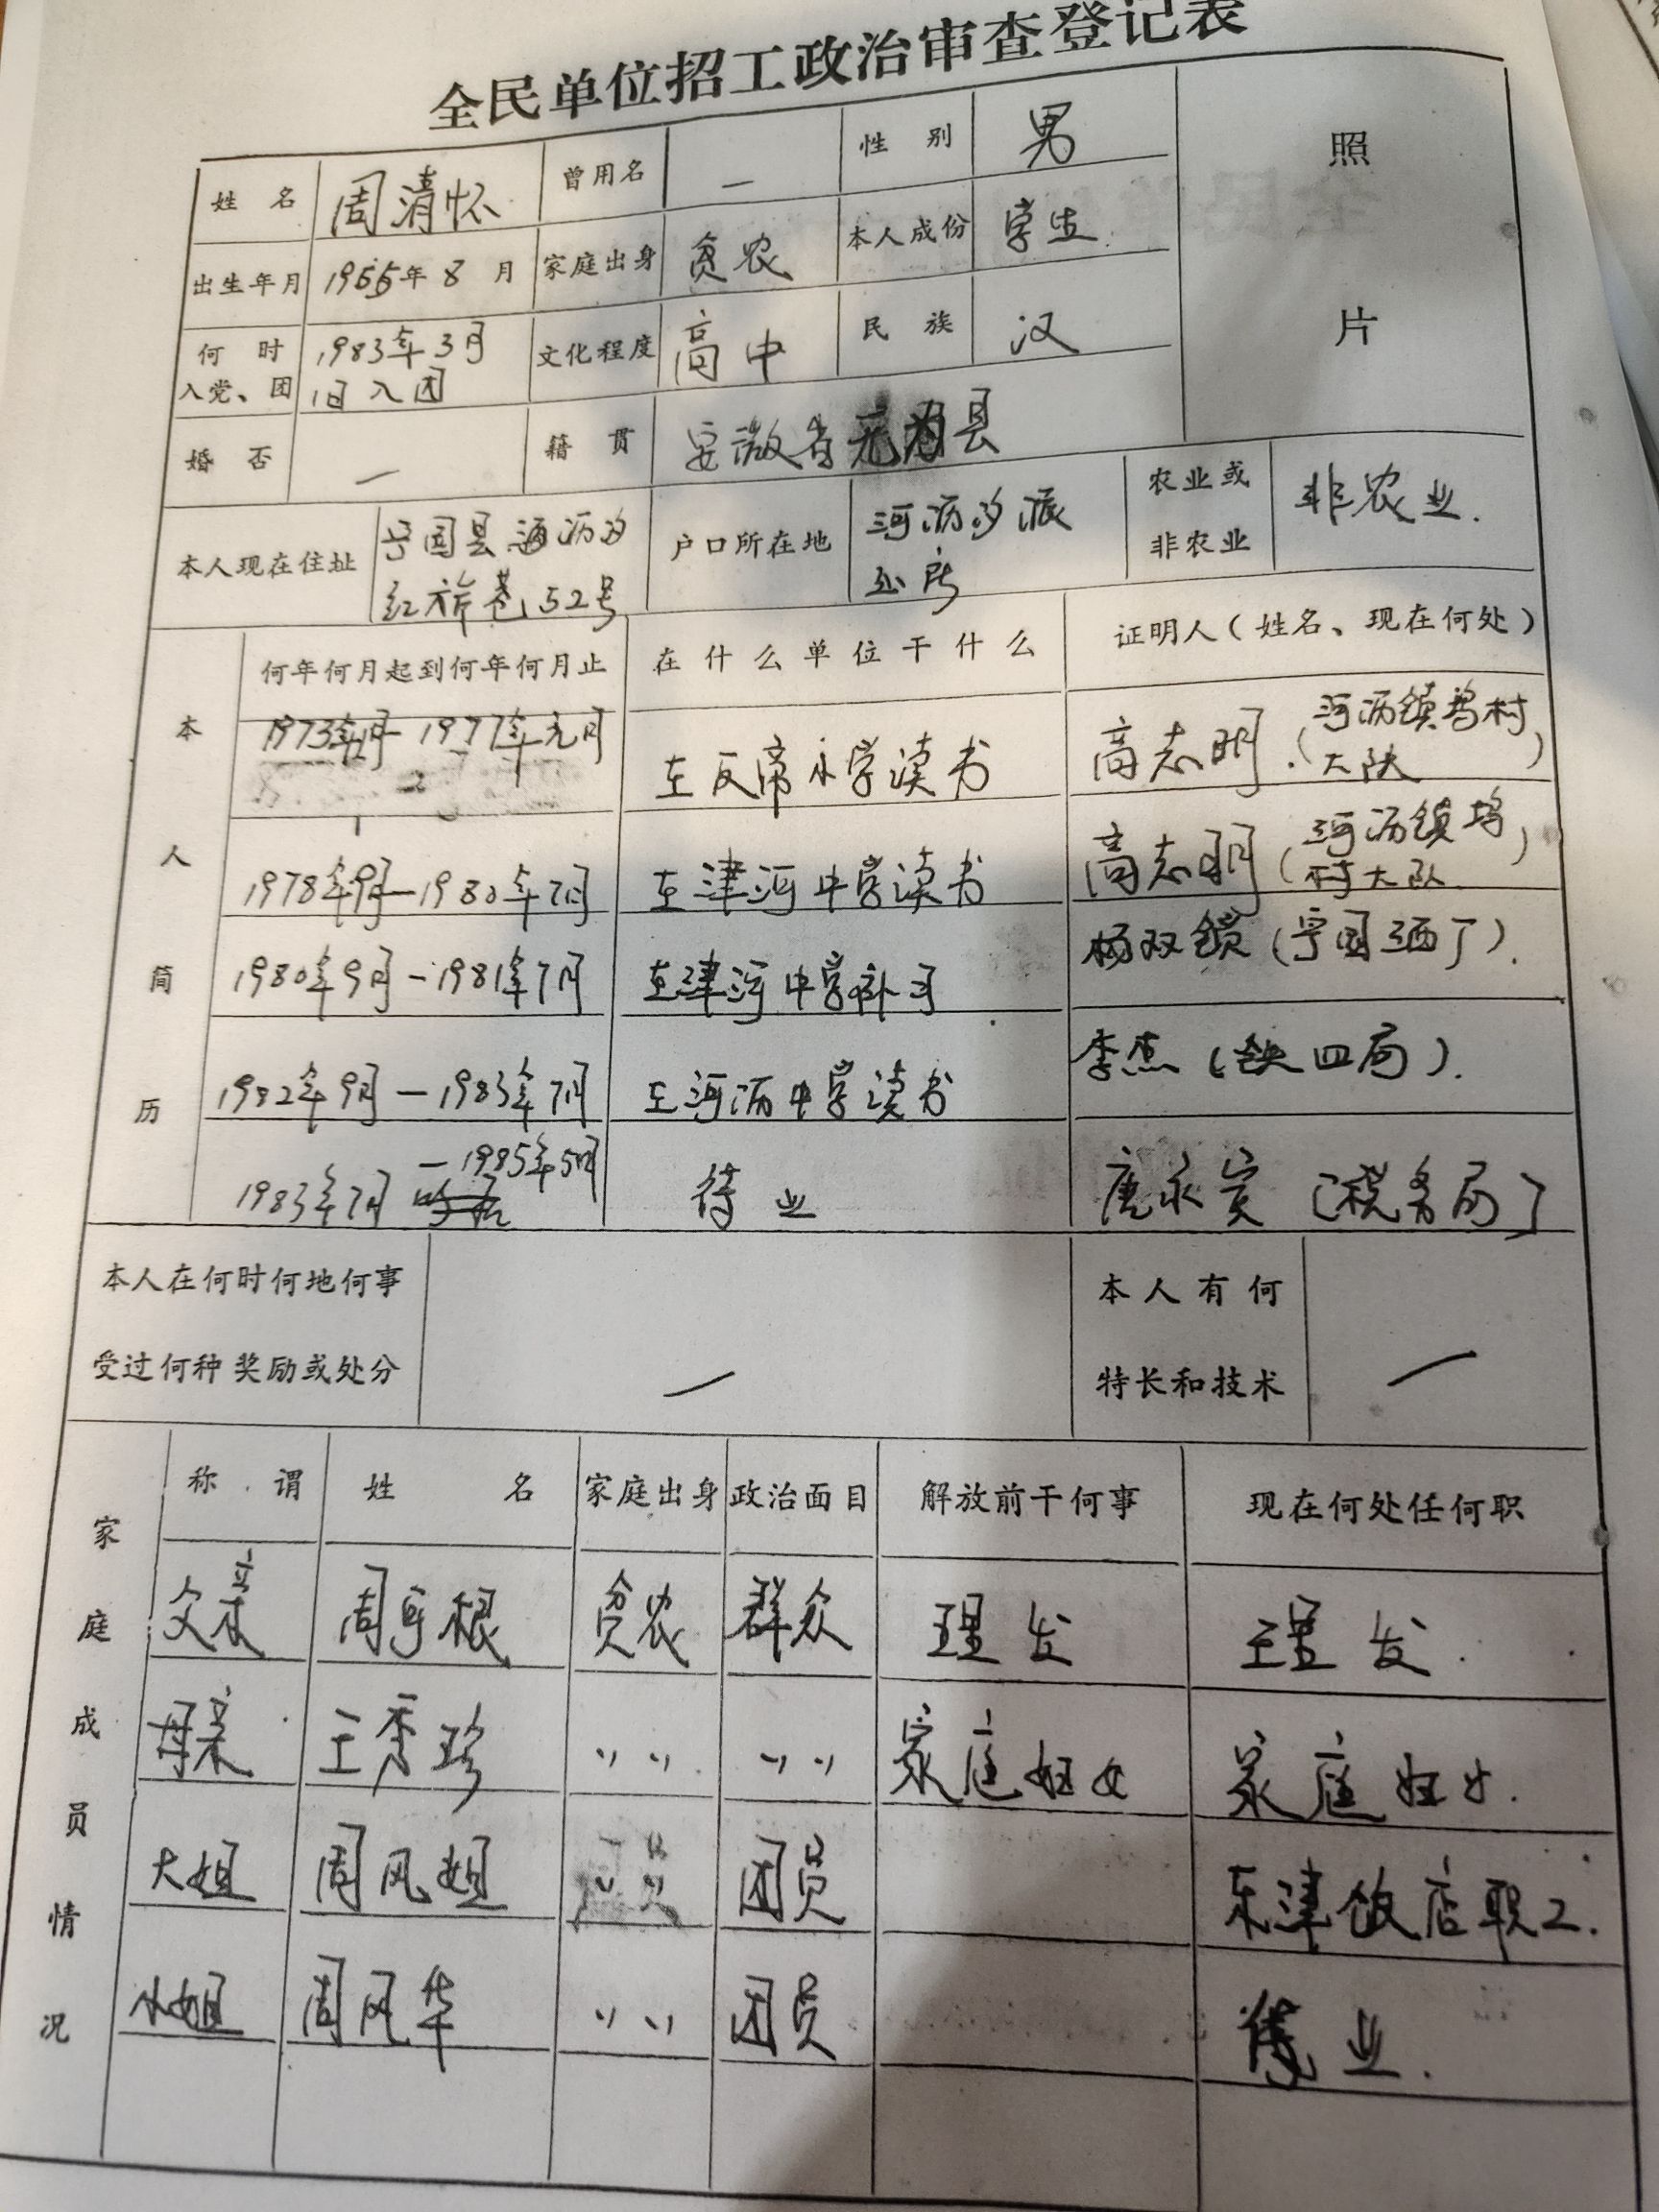 全民单位招工政治审查登记表
姓 名 周清怀 曾用名 — 性 别 男 照片
出生年月 年8月 家庭出身 贫农 本人成份 学生
何 时入党、团 1983年3月1日入团 文化程度 高中 民 族 汉
婚 否 — 籍 贯 安徽省无为县
本人现在住址 宁国县河沥汐红旂巷52号 户口所在地 河沥汐派出所 农业或非农业 非农业.
本人简历
何年何月起到何年何月止 在什么单位干什么 证明人(姓名、现在何处)
1977年元月 在反帝小学读书 高志明.(河沥镇坞村大队)
1978年9月—1980年7月 在津河中学读书 高志明(河沥镇坞村大队)
1980年9月—1981年7月 在津河中学补习 杨双锁(宁国酒厂).
1982年9月—1983年7月 在河沥中学读书 李杰(铁四局).
1983年7月—1985年5月 待业 唐永 (税务局)
本人在何时何地何事受过何种奖励或处分 — 本人有何特长和技术 —
家庭成员情况
称 谓 姓 名 家庭出身 政治面目 解放前干何事 现在何处任何职
父亲 周 根 贫农 群众 理发 理发.
母亲 王秀珍 〃〃 〃〃 家庭妇女 家庭妇女.
大姐 周凤姐 团员 东津饭店职工.
小姐 周凤华 〃〃 团员 待业.